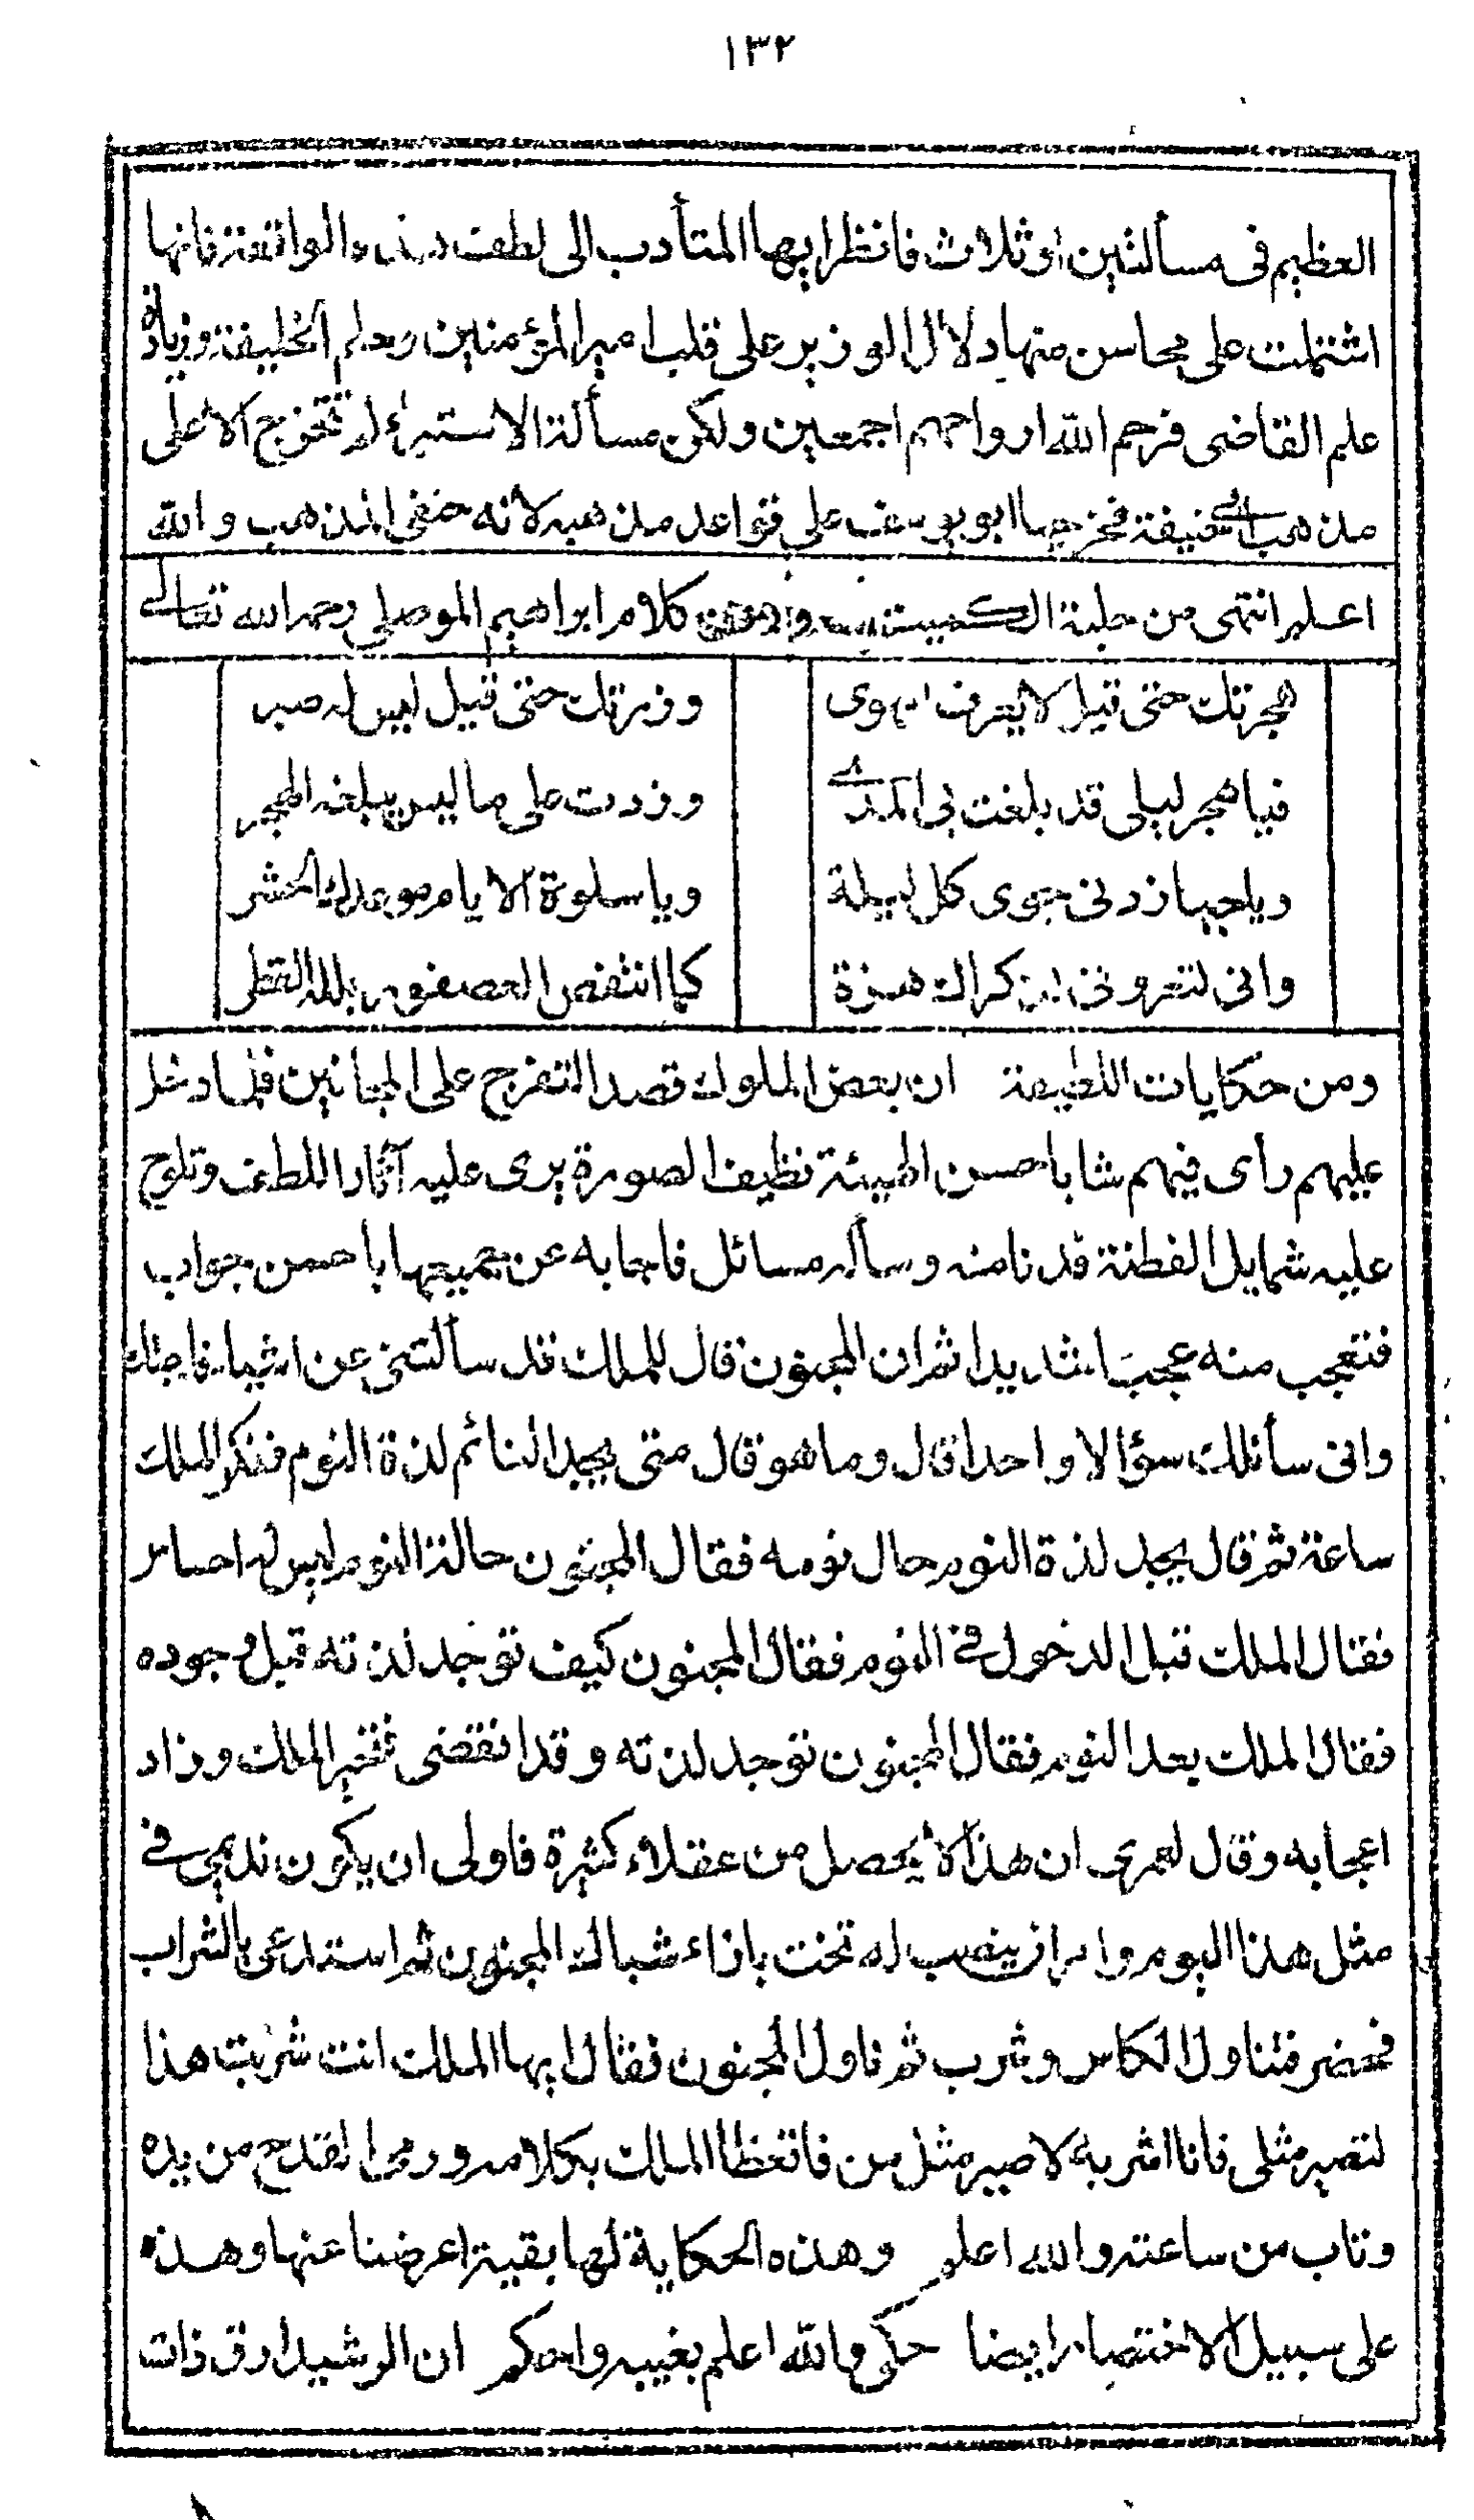 ١٣٢
العظيم فى مسألتين او ثلاث فانظر ايها المتأدب الى لطف هذه الواقعة فانها
اشتملت على محاسن منها دلال الوزير على قلب امير المؤمنين وحلم الخليفة وزيادة
علم القاضى فرحم الله ارواحهم اجمعين ولكن مسألة الاستبراء لم تتخرج الا على
مذهب ابى حنيفة فخرجها ابو يوسف على قواعد مذهبه لانه حنفى المذهب والله
اعلم انتهى من حلبة الكميت ومن كلام ابراهيم الموصلى رحمه الله تعالى
هجرتك حتى قيل لا يعرف الهوى وزرتك حتى قيل ليس له صبر
فيا هجر ليلى قد بلغت بى المدى وزدت على ما ليس يبلغه الهجر
ويا حبها زدنى جوى كل ليلة ويا سلوة الايام موعدك الحشر
وانى لتعرونى لذكراك هزة كما انتفض العصفور بلله القطر
ومن حكايات اللطيفة ان بعض الملوك قصد التفرج على المجانين فلما دخل
عليهم رأى فيهم شابا حسن الهيئة نظيف الصورة يرى عليه آثار اللطف وتلوح
عليه شمايل الفطنة فدنا منه وسأله مسائل فاجابه عن جميعها باحسن جواب
فتعجب منه عجبا شديدا ثم ان المجنون قال للملك قد سألتنى عن اشياء فاجبتك
وانى سأئلك سؤالا واحدا قال وما هو قال متى يجد النائم لذة النوم ففكر الملك
ساعة ثم قال يجد لذة النوم حال نومه فقال المجنون حالة النوم ليس له احساس
فقال الملك قبل الدخول فى النوم فقال المجنون كيف توجد لذته قبل وجوده
فقال الملك بعد النوم فقال المجنون توجد لذته وقد انقضى فتحير الملك وزاد
اعجابه وقال لعمرى ان هذا لا يحصل من عقلاء كثيرة فاولى ان يكون نديمى فى
مثل هذا اليوم وامر ان ينصب له تخت بازاء شباك المجنون ثم استدعى بالشراب
فحضر فتناول الكاس وشرب ثم ناول المجنون فقال ايها الملك انت شربت هذا
لتصير مثلى فانا اشربه لاصير مثل من فاتعظ الملك بكلامه ورمى القدح من يده
وتاب من ساعته والله اعلم وهذه الحكاية لها بقية اعرضنا عنها وهذه
على سبيل الاختصار ايضا حكى والله اعلم بغيبه واحكم ان الرشيد ارق ذات